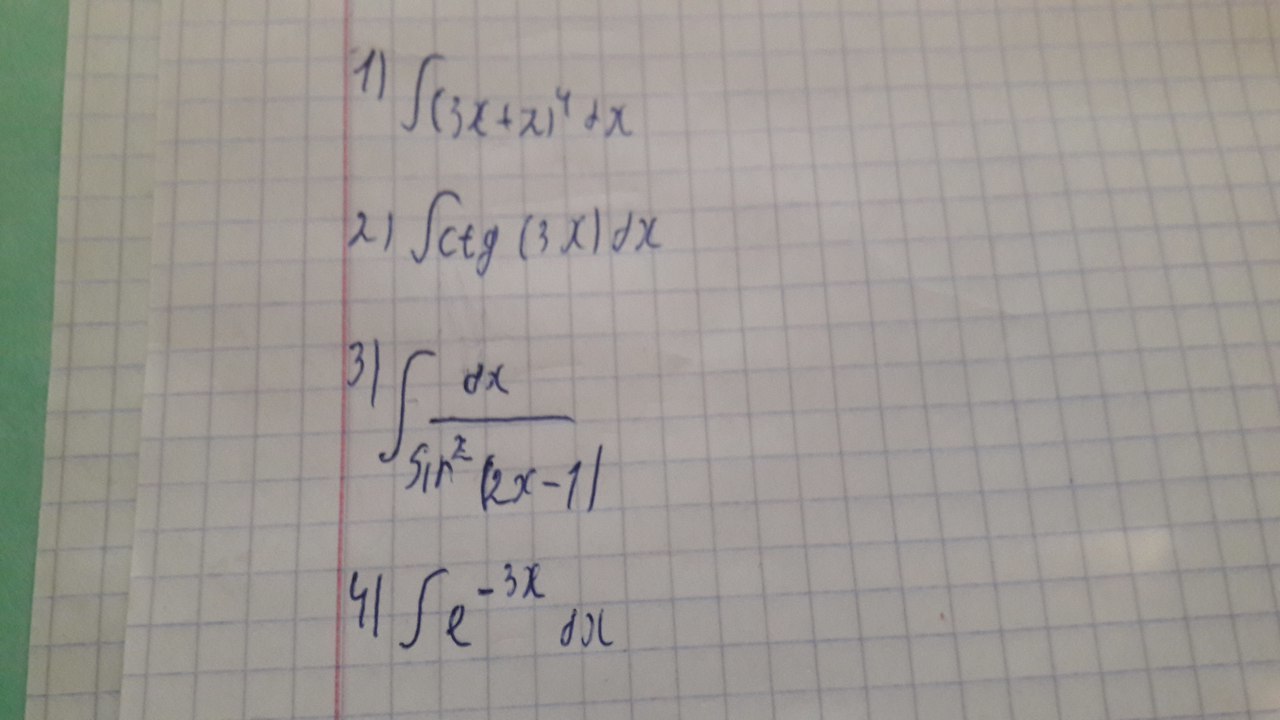 1) ∫(3x+2)⁴ dx
2) ∫ctg (3x) dx
3) ∫ dx
sin² (2x-1)
4) ∫e⁻³ˣ dx